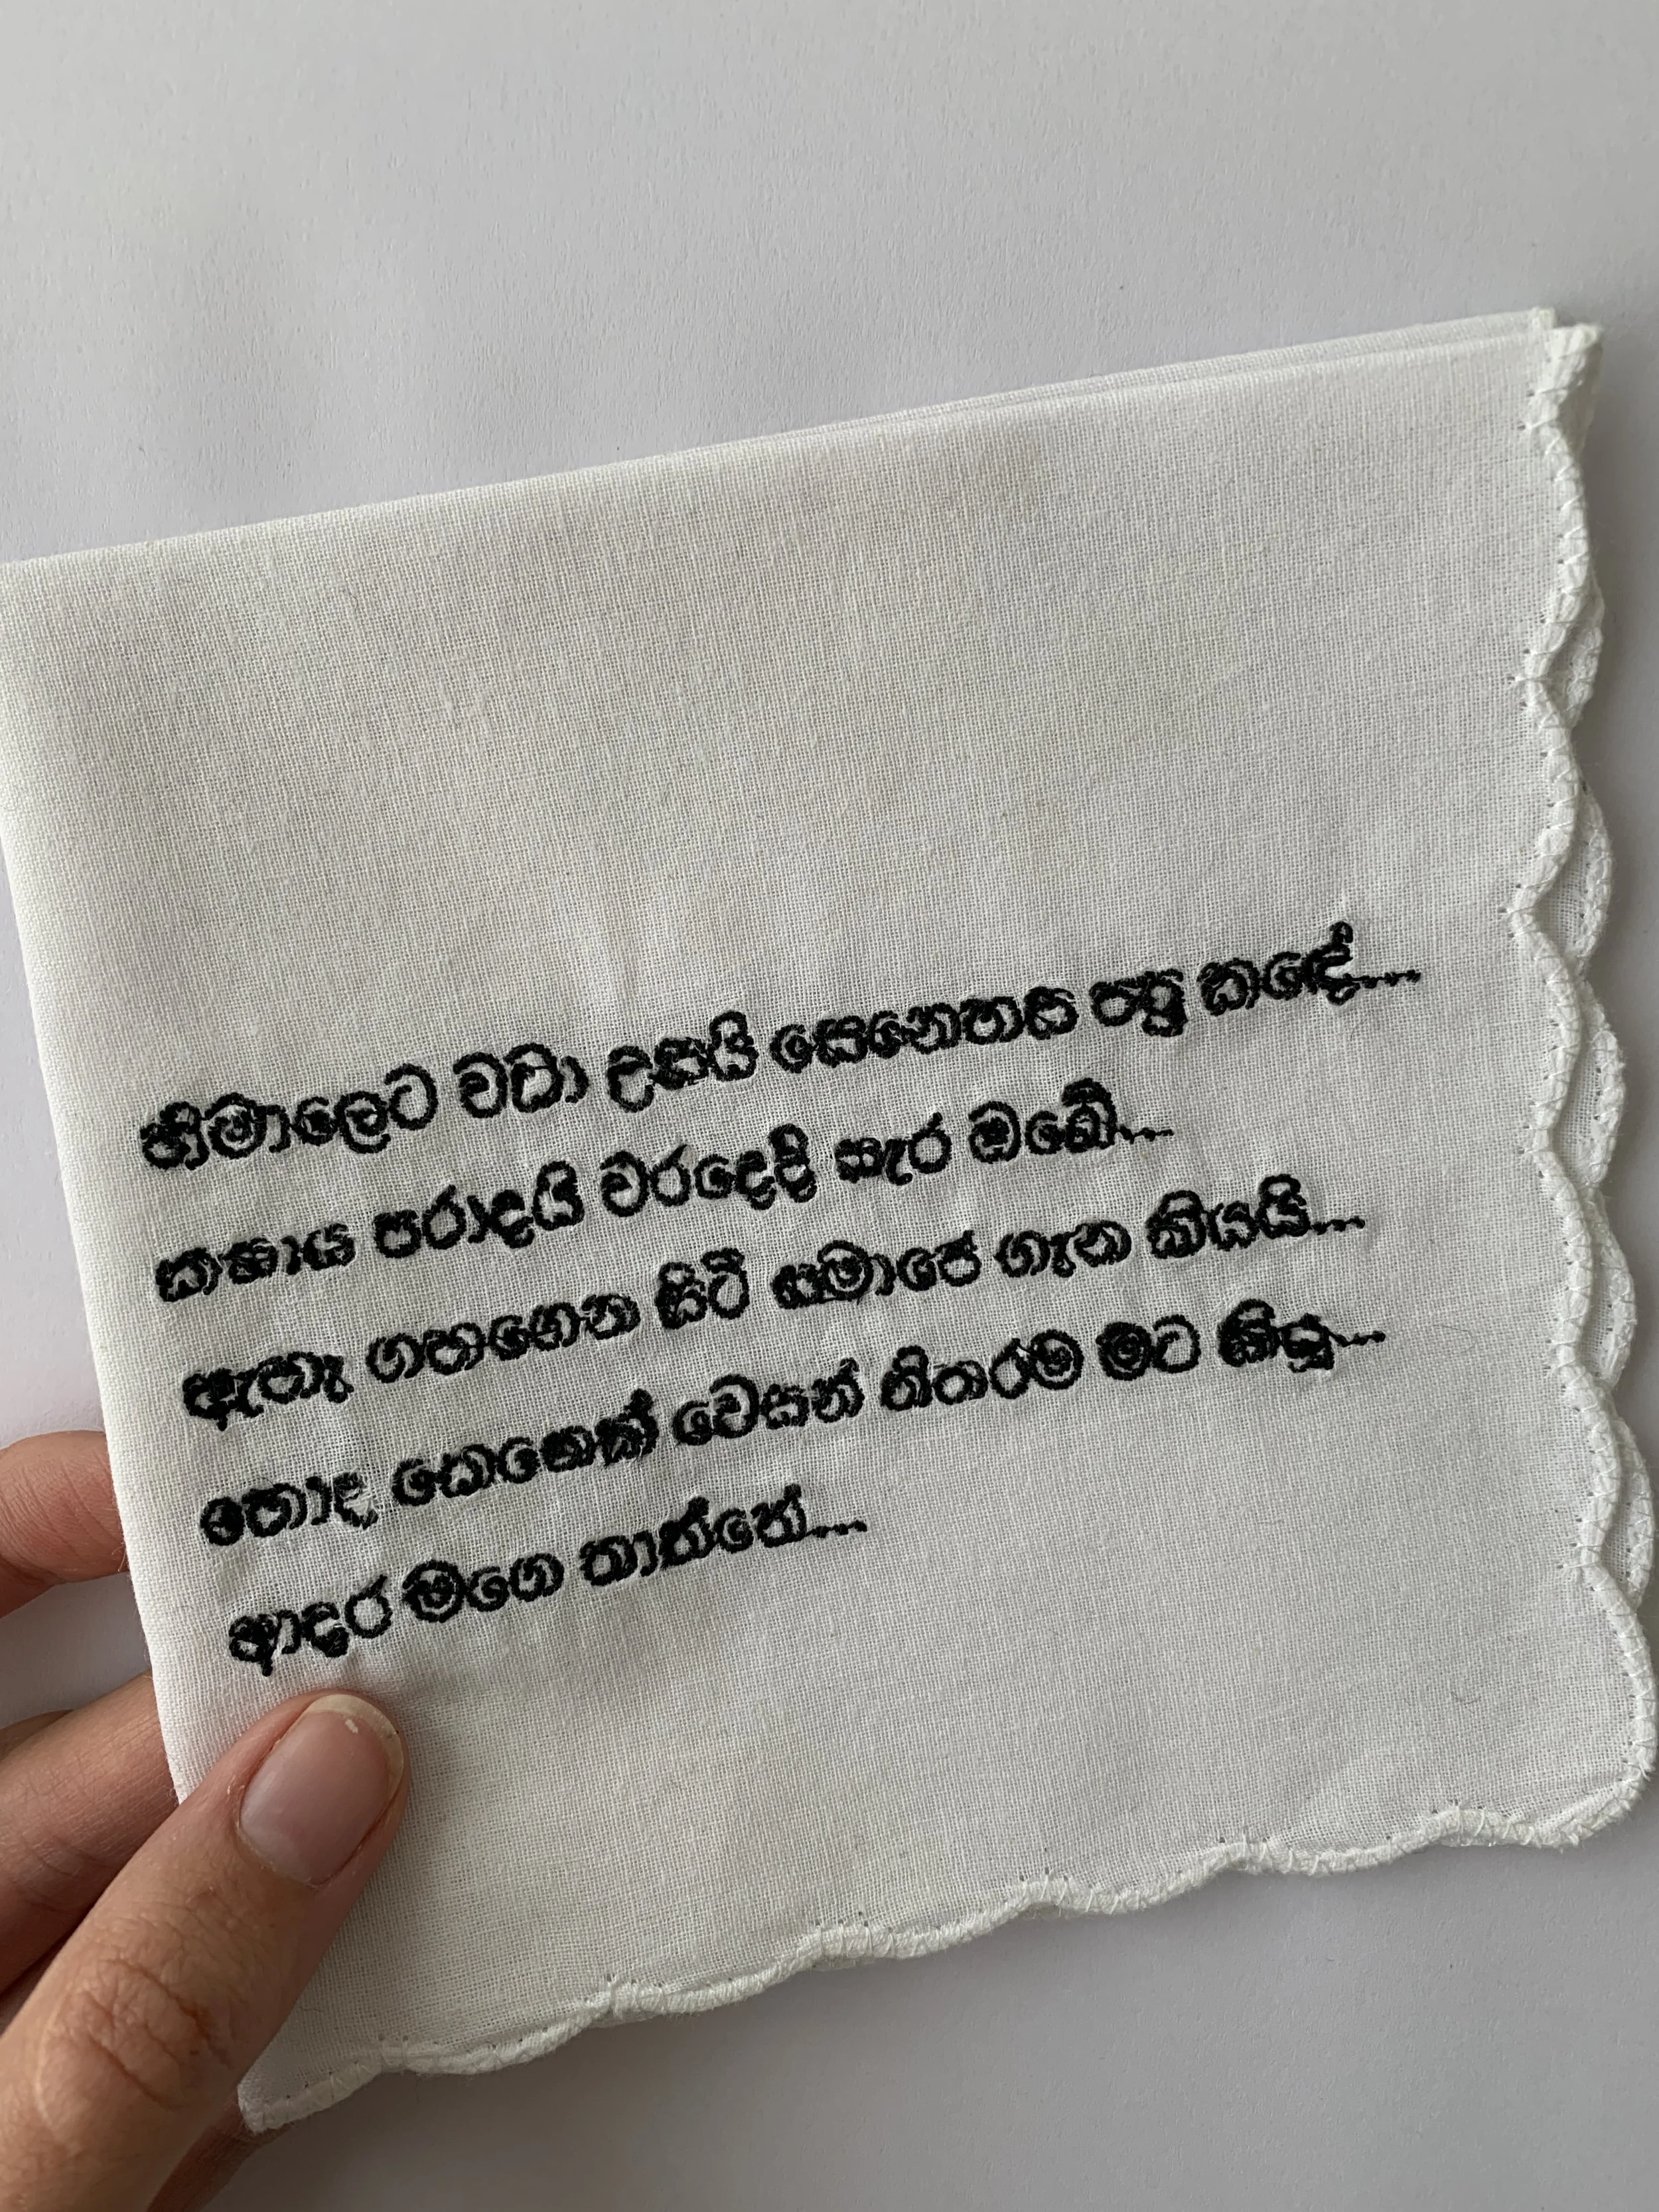 හිමාලෙට වඩා උසයි සෙනෙහස පපු කඳේ...
කෂාය පරාදයි වරදෙදි සැර ඔබේ...
ඇහැ ගහගෙන සිටි සමාජෙ ගැන කියයි...
හොඳ කෙනෙක් වෙසන් නිතරම මට කියූ...
ආදර මගෙ තාත්තේ...